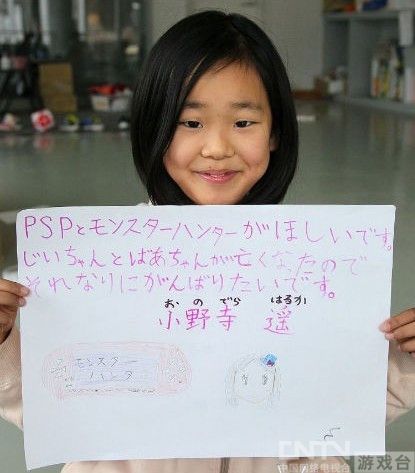 PSPとモンスターハンターがほしいです。
じいちゃんとばあちゃんが亡くなったので
それなりにがんばりたいです。
おのでら はるか
小野寺 遥
モンスター
ハンタ
CNTV
中国网络电视台
游戏台